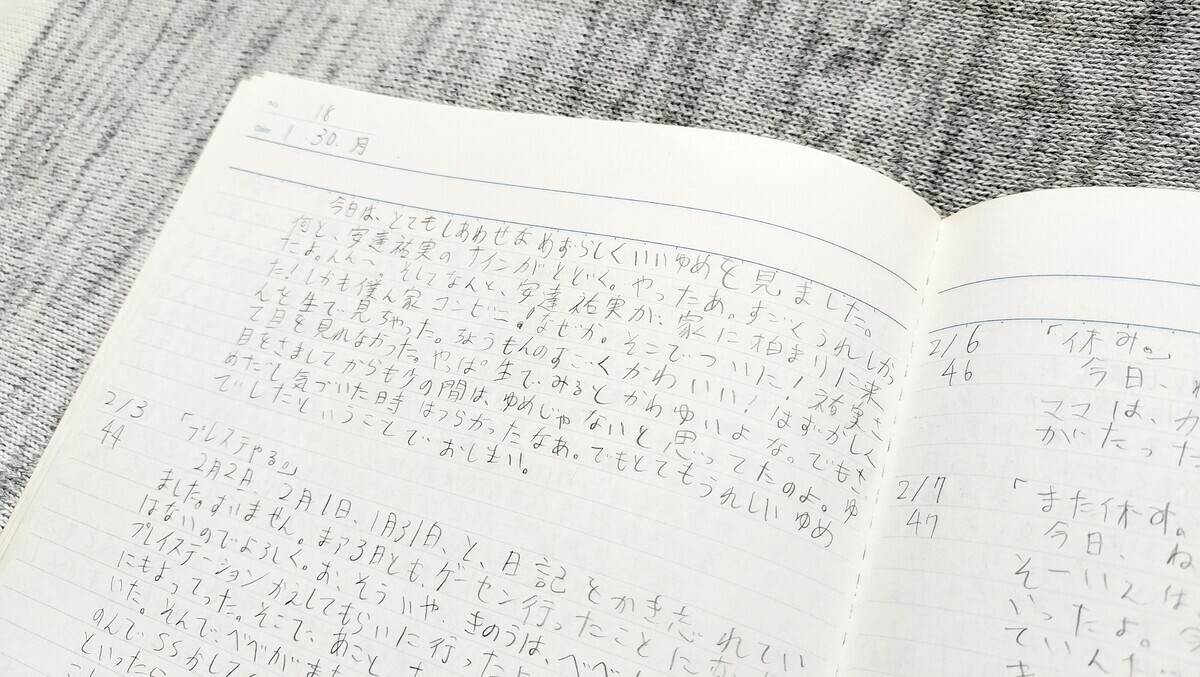 No. 18
Date 1 .30. 月
今日は、とてもしあわせなめずらしくいいゆめを見ました。
何と、安達祐実のサインがとどく。やったあ。すごくうれしかっ
たよ。んん〜。そしてなんと、安達祐実が、家に泊まりに来
た!しかも僕ん家コンビニ。なぜか。そこでついに!祐実さ
んを生で見ちゃった。ちょうもんのすごくかわいい!はずかしく
て目を見れなかった。やっぱ生でみるとかわゆいよな。でもさ、
目をさましてからも少の間は、ゆめじゃないと思ってたのよ。ゆ
めだと気づいた時はつらかったなあ。でもとてもうれしいゆめ
でしたということでおしまい。
2/3 「プレステやる。」
44 2月2日、2月1日、1月31日、と、日記をかき忘れてい
ました。すいません。まア3日とも、ゲーセン行ったことに
はないのでよろしく。お、そういや、きのうは、べべ
プレイステーションかえしてもらいに行ったよ
にもよってった。そこで、あこと
いた。そんで、べべがまた
のんでSSかして
といったに
2/6 「休み。」
46 今日、
ママは、か
がたった
2/7 「また休す。
47 今日、ね
そーいえば
いったよ。
ていんだ